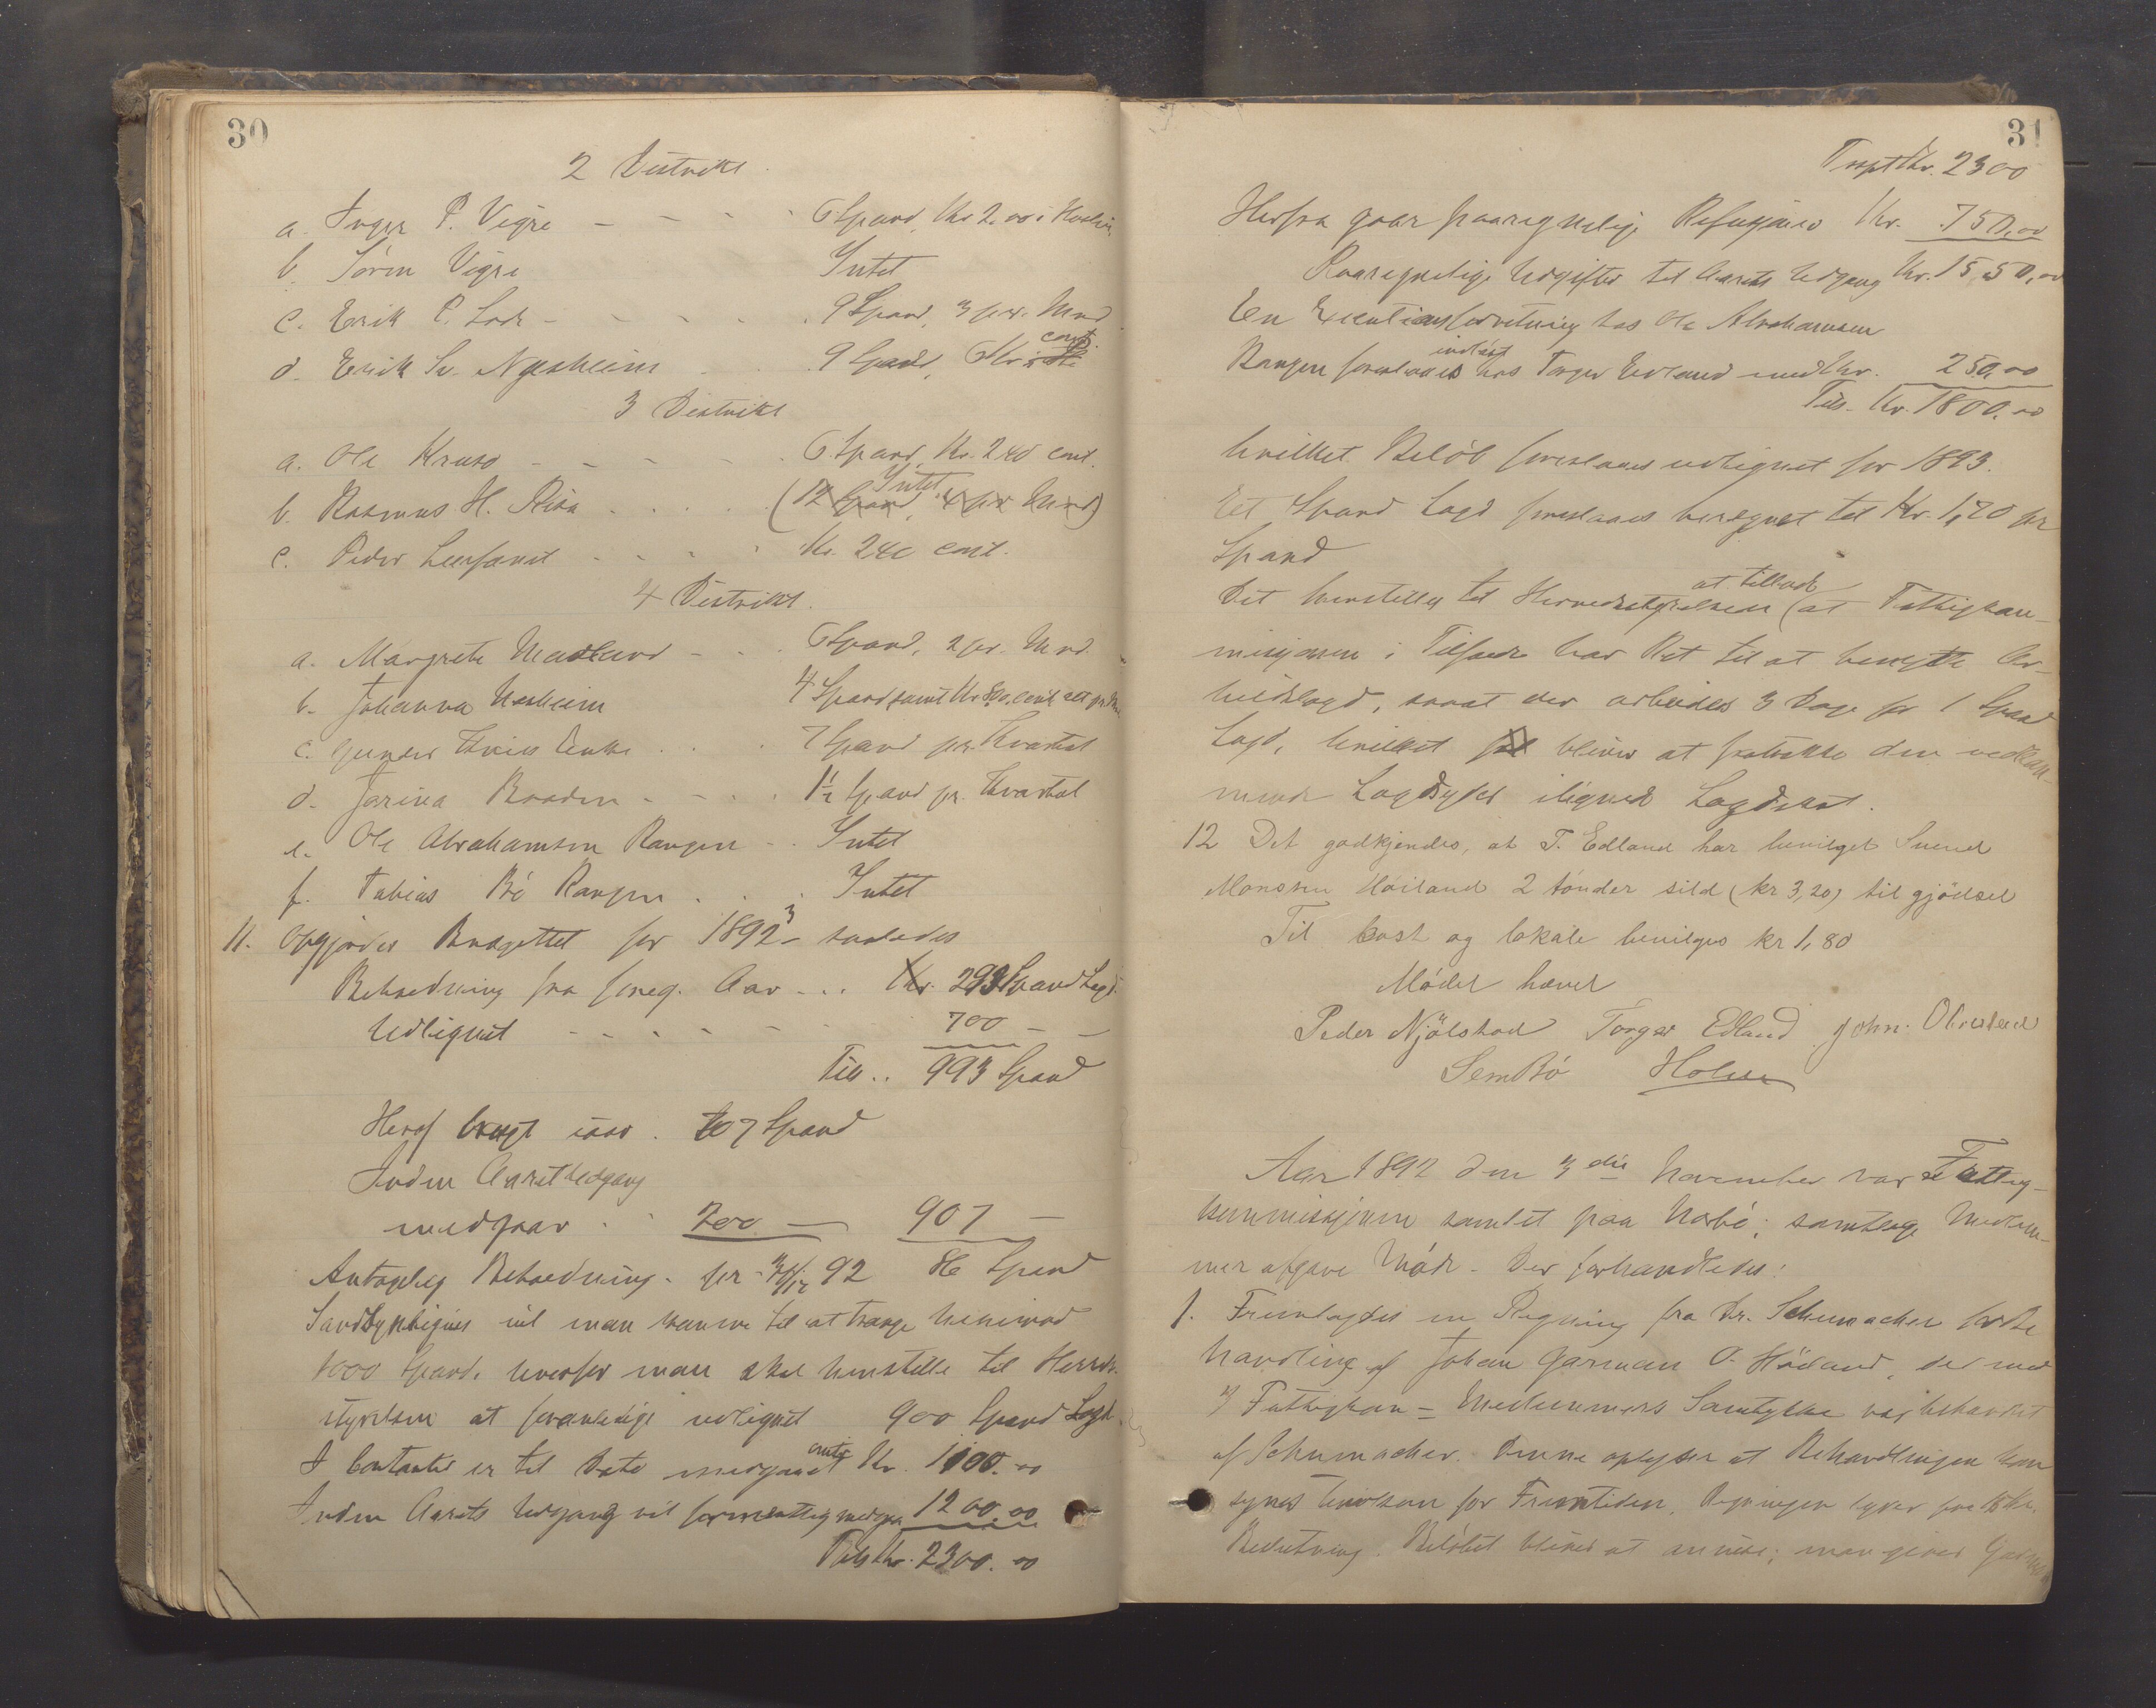 30
2 Distrikt
a. Inger P. Vigre - - - 6 Spand, Kr 2.00 i
b. Sören Vigre Intet
c. Erik P. Lode - - - - 9 Spand, 3 pr. Mnd
d. Erik Sv. Njæsheim - - 9 Spand, 6 Kr cont.
3 Distrikt
a. Ole Kruso - - - - 6 Spand, Kr. 240 cont.
Intet
b. Rasmus H. Risa . . . . . (12 Spand, 4 pr Mnd)
c. Peder - - - - Kr. 240 cont.
4 Distrikt.
a. Margrete Madland - - - 6 Spand, 2 pr. Mnd.
b. Johanna Næsheim 4 Spand samt Kr 8.00 cont.
c. Gunder Enke . . . 7 Spand pr. Kvartal
d. Jorina Braaden - - - . 1½ Spand pr. Kvartal
e. Ole Abrahamsen Rangen - . Intet
f. Tobias Bö Rangen . . . Intet
11. Opgjordes Budgettet for 1893 saaledes
Beholdning fra foreg. Aar . . . 293 Spand Lægd
Udlignet - - - - - - 700 - -
Tils . . 993 Spand
Heraf brugt iaar . 207 Spand
Inden Aarets Udgang
medgaar . . 700 — 907 —
Antagelig Beholdning pr 31/12 92 86 Spand
Sandsynligvis vil man komme til at trænge henimod
1000 Spand, hvorfor man skal henstille til Herreds-
styrelsen at foranledige udlignet 900 Spand Lægd.
I Contanter er til Dato medgaaet omtr Kr. 1100.00
Inden Aarets Udgang vil formentlig medgaa 1200.00
Tils Kr. 2300.00
31
Trspt Kr. 2300
Herfra gaar paaregnelige Refusjoner Kr. 750,00
Paaregnelige Udgifter til Aarets Udgang Kr. 1550,00
En Executionsforretning hos Ole Abrahamsen
Rangen foreslaaes indløst hos Torger Edland med Kr. 250,00
Tils. Kr. 1800.00
hvilket Beløb foreslaaes udlignet for 1893.
Et Spand Lægd foreslaaes beregnet til Kr. 1,20 pr
Spand
Det henstilles til Herredsstyrelsen at tillade (at Fattigkom-
misjonen i Tilfælde har Ret til at benytte Ar-
beidslægd, saaat der arbeides 3 Dage for 1 Spand
Lægd, hvilket bliver at fratrække den vedkom-
mende Lægdsyder ilignede Lægdskat.
12 Det godkjendes, at T. Edland har bevilget Svend
Monsen Høiland 2 tönder sild (kr 3,20) til gjödsel
Til kost og lokale bevilges kr 1,80
Mödet hævet
Peder Njölstad Torger Edland John. Olevstad
Sem Bö Holen
Aar 1892 den 3die November var Fattig-
kommisjonen samlet paa Nærbö; samtlige Medlem-
mer afgave Möde. Der forhandledes:
1. Fremlagdes en Regning fra Dr. Schumacher for Be
handling af Johan Garman O. Höiland, der med
3 Fattigkom- Medlemmers Samtykke var behandlet
af Schumacher. Denne oplyser at Behandlingen kan
synes for Fremtiden. Regningen lyder paa Kr.
Beslutning. Beløbet bliver at anvise; man giver